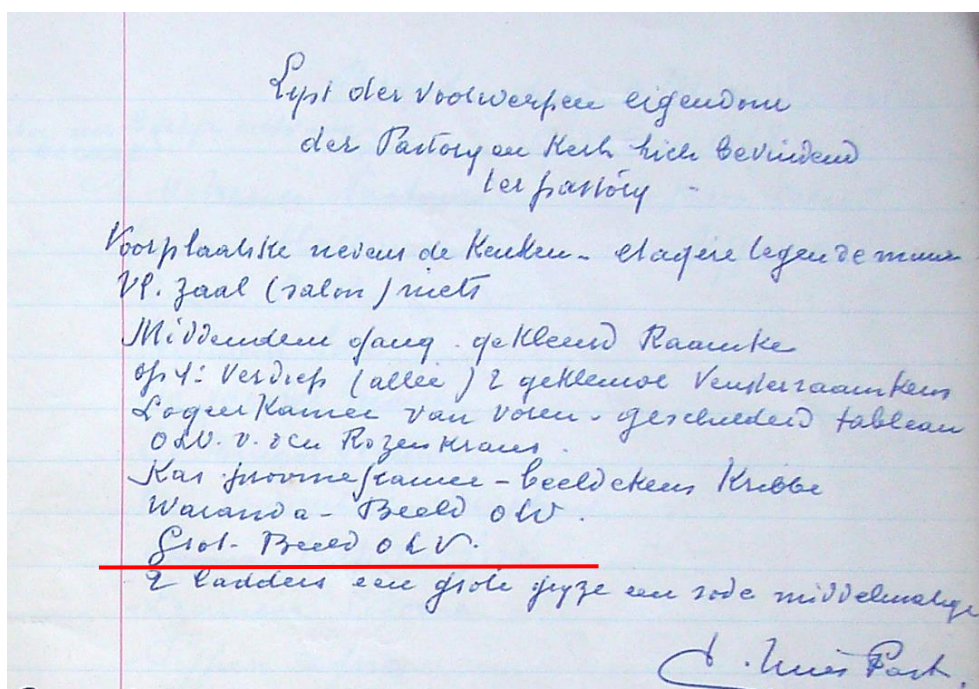 Lyst der voorwerpen eigendom
der Pastory en Kerk zich bevindend
ter pastory -
Voorplaatske nevens de Keuken - etagere tegen de muur
Vl. Zaal (salon) niets
Middendeur gang. gekleurd Raamke
op 1: Verdiep (allee) 2 gekleurde Vensterraamkens
Logeerkamer van voren - geschilderd tableau
OLV. v. den Rozenkrans.
Kas provinekamer - beeldekens Kribbe
Waranda - Beeld OLV.
Grot - Beeld OLV.
2 ladders een grote gryze een rode middelmatige
Past.